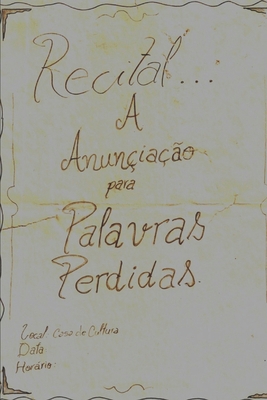 Recital...
A
Anunçiação
para
Palavras
Perdidas.
Local: Casa de Cultura
Data
Horário: